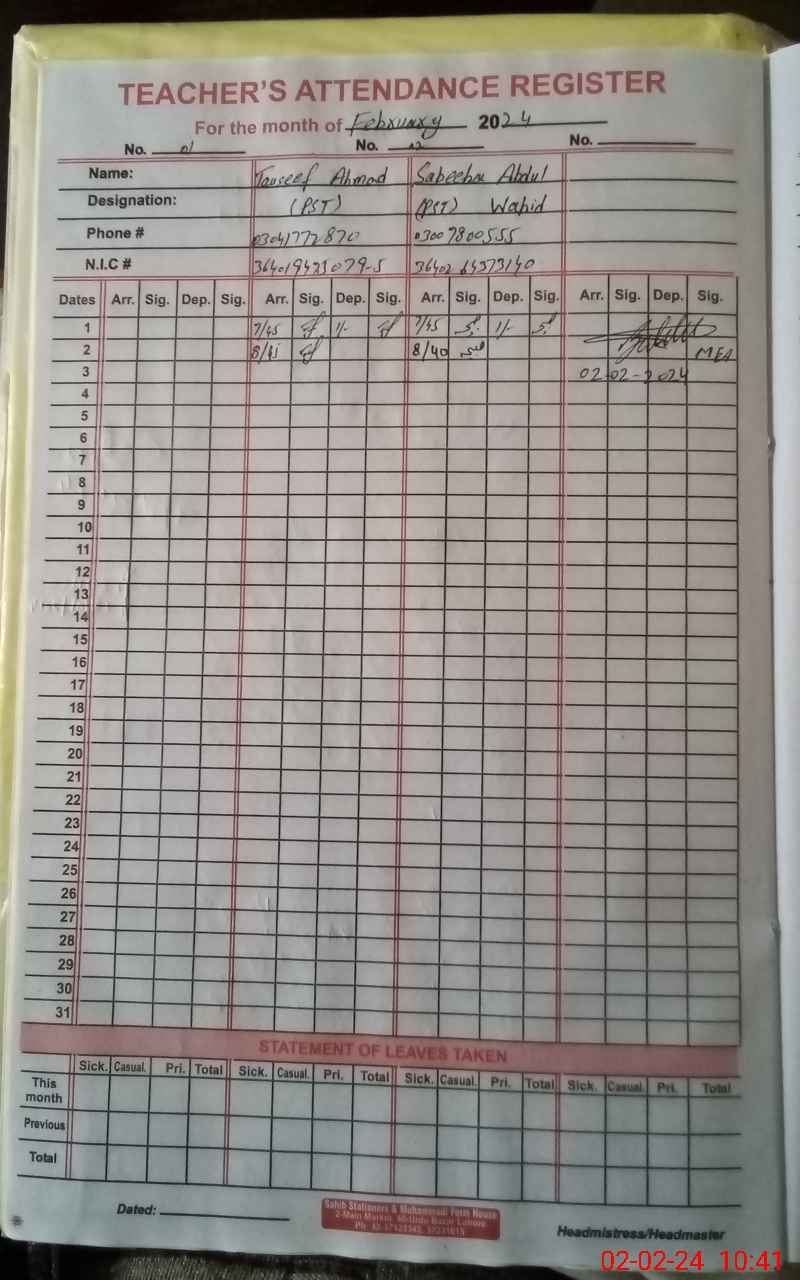 TEACHER'S ATTENDANCE REGISTER
For the month of February 2024
No. 01 No. 02 No.
Name: Touseef Ahmad Sabeeha Abdul
Designation: (PST) (PST) Wahid
Phone # 03041772870 03007800555
N.I.C #
Dates Arr. Sig. Dep. Sig. Arr. Sig. Dep. Sig. Arr. Sig. Dep. Sig. Arr. Sig. Dep. Sig.
1 7/45 1/- 7/45 1/-
2 8/45 8/40 MEA
3 02-02-2024
4
5
6
7
8
9
10
11
12
13
14
15
16
17
18
19
20
21
22
23
24
25
26
27
28
29
30
31
STATEMENT OF LEAVES TAKEN
Sick. Casual. Pri. Total Sick. Casual. Pri. Total Sick. Casual. Pri. Total Sick. Casual. Pri. Total
This month
Previous
Total
Dated:
Sahib Stationers & Muhammadi Form House
2-Main Market, 60-Urdu Bazar Lahore
Headmistress/Headmaster
02-02-24 10:41